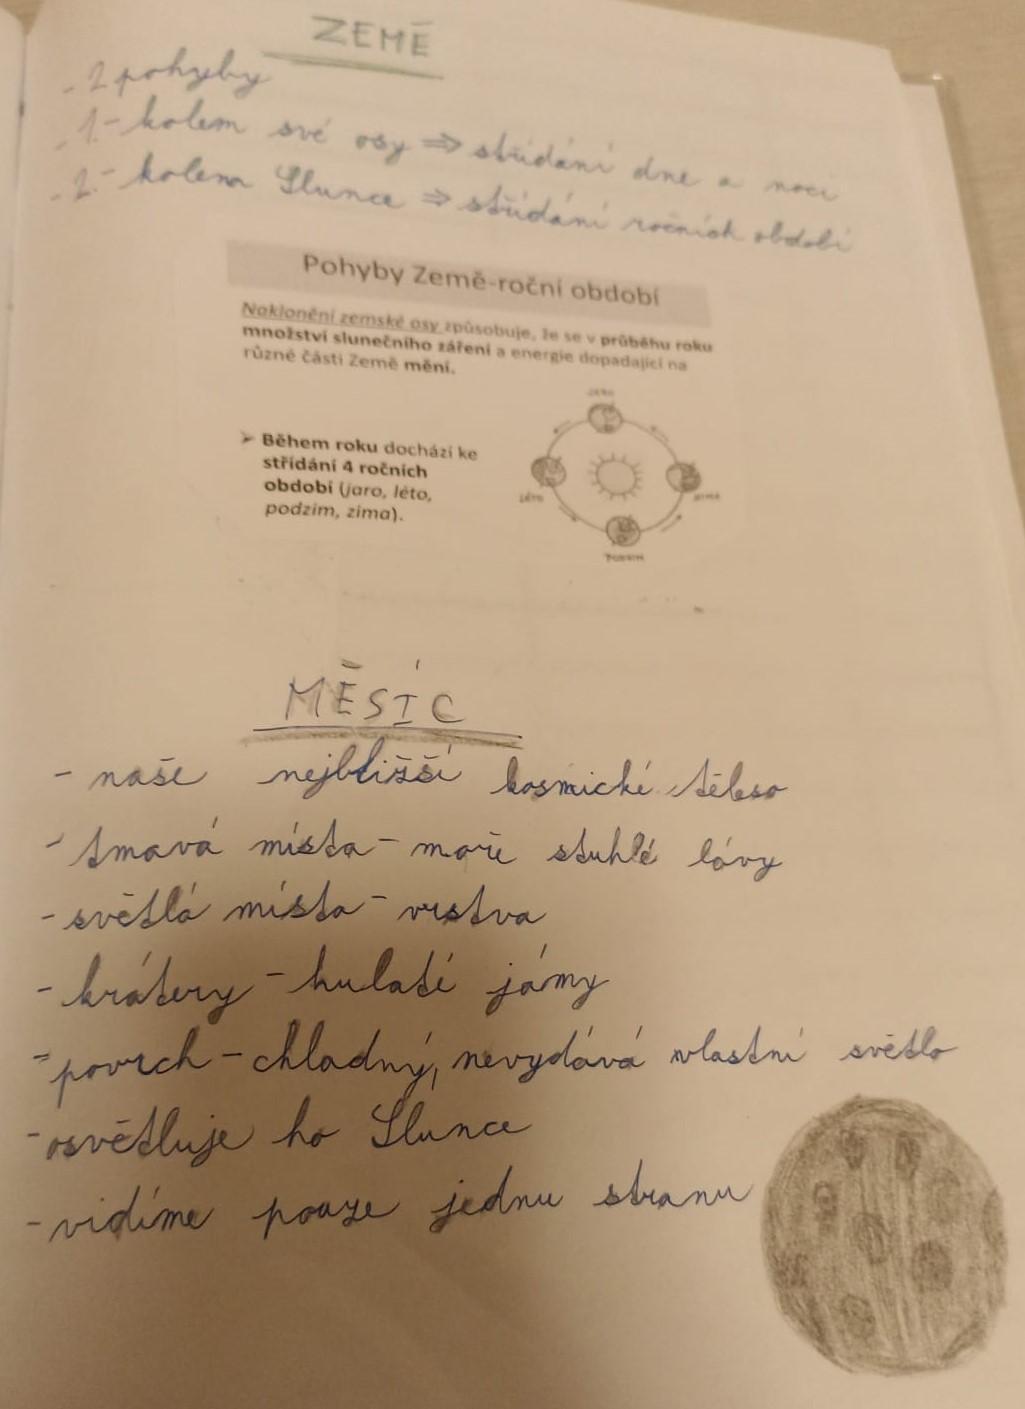 ZEMĚ
- 2 pohyby
- 1.- kolem své osy ⇒ střídání dne a noci
- 2.- kolem Slunce ⇒ střídání ročních období
Pohyby Země-roční období
Naklonění zemské osy způsobuje, že se v průběhu roku
množství slunečního záření a energie dopadající na
různé části Země mění.
JARO
➢ Během roku dochází ke
střídání 4 ročních
období (jaro, léto,
podzim, zima).
LÉTO
ZIMA
PODZIM
MĚSÍC
- naše nejbližší kosmické těleso
- tmavá místa - moře stuhlé lávy
- světlá místa - vrstva
- krátery - kulaté jámy
- povrch - chladný, nevydává vlastní světlo
- osvětluje ho Slunce
- vidíme pouze jednu stranu